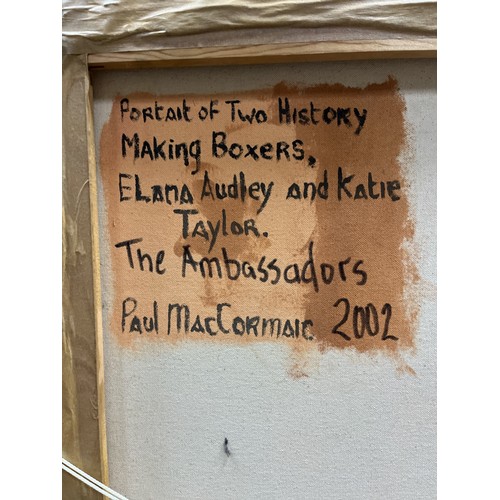 Portait of Two History
Making Boxers,
Elana Audley and Katie
Taylor.
The Ambassadors
Paul MacCormaic 2002